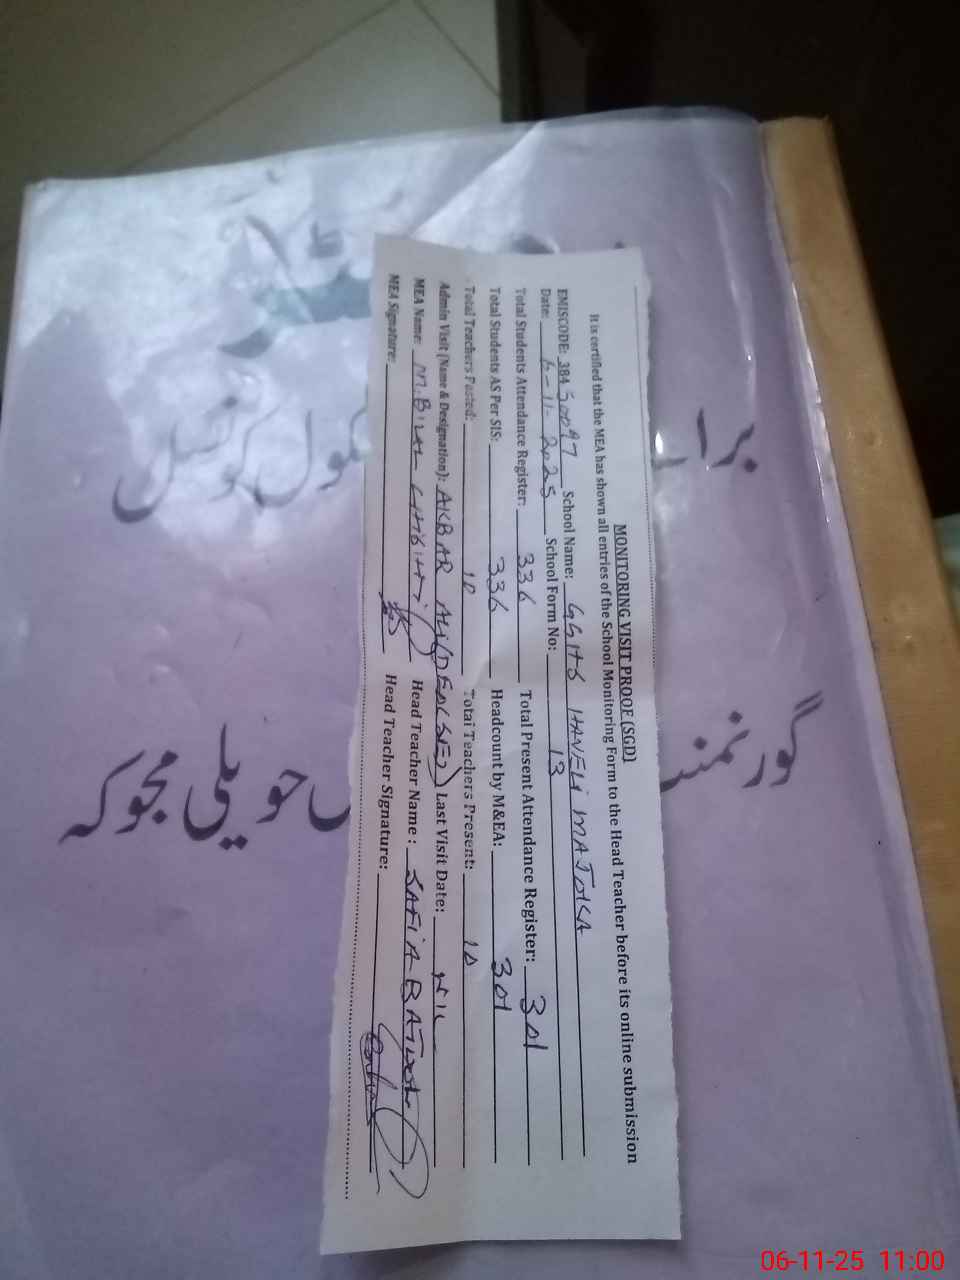 MONITORING VISIT PROOF (SGD)
It is certified that the MEA has shown all entries of the School Monitoring Form to the Head Teacher before its online submission
EMISCODE: 38430097 School Name: GGHS HAVELI MAJOKA
Date: 6-11-2025 School Form No: 13
Total Students Attendance Register: 336 Total Present Attendance Register: 301
Total Students AS Per SIS: 336 Headcount by M&EA: 301
Total Teachers Posted: 10 Total Teachers Present: 10
Admin Visit (Name & Designation): AKBAR ALI Last Visit Date: NIL
MEA Name: M. BILAL CHISHTI Head Teacher Name: SAFIA BATOOL
MEA Signature: Head Teacher Signature:
سکول کونسل
گورنمنٹ
حویلی مجوکہ
06-11-25 11:00